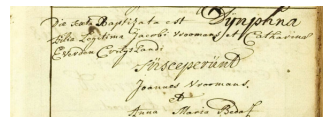 Die sexta Baptizata est Dÿmphna
filia Legitima Jacobi Voormans et Catharina
Everden
Susceperunt
Joannes Voormans.
et
Anna Maria Bedaf